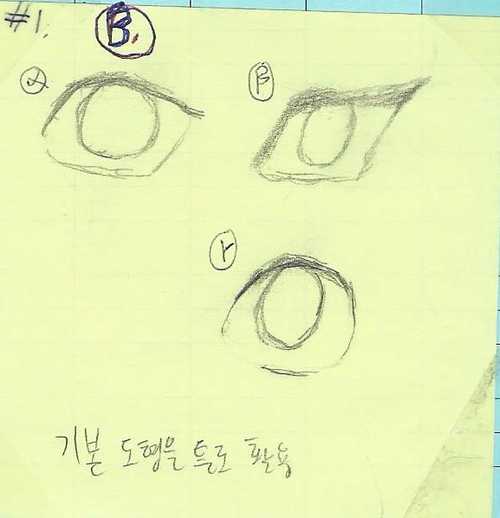 #1.
B.
α
β
γ
기본 도형을 틀로 활용